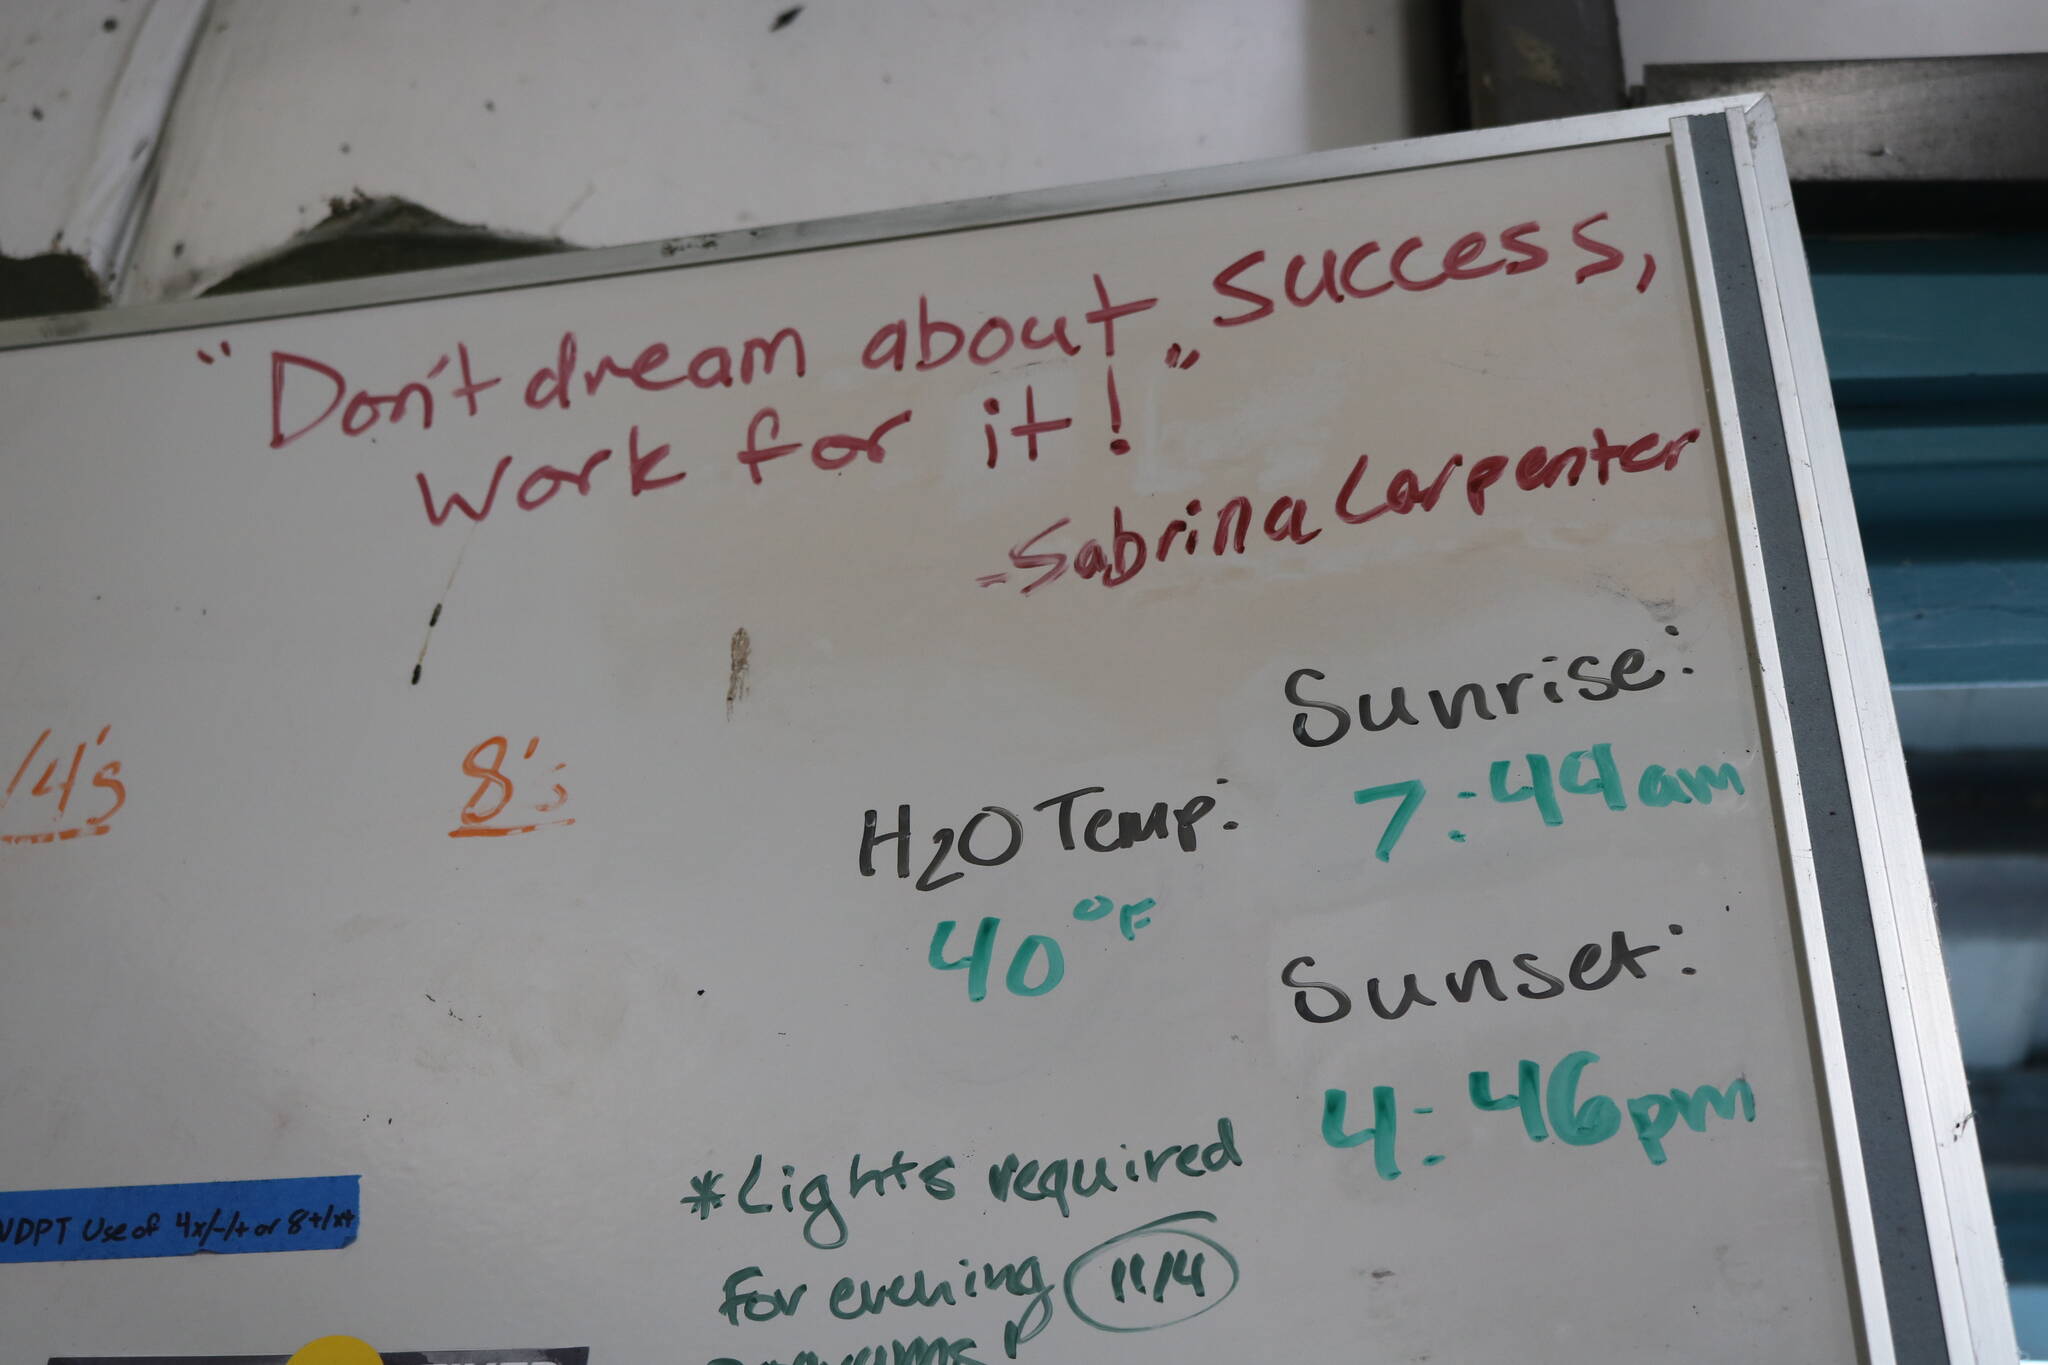 "Don't dream about success,
Work for it!"
-Sabrina Carpenter
Sunrise:
7:49am
H2O Temp:
40°F
Sunset:
4:46pm
/4's
8's
*Lights required
for evening 11/4
programs
Use of 4x/-/+ or 8+/x+